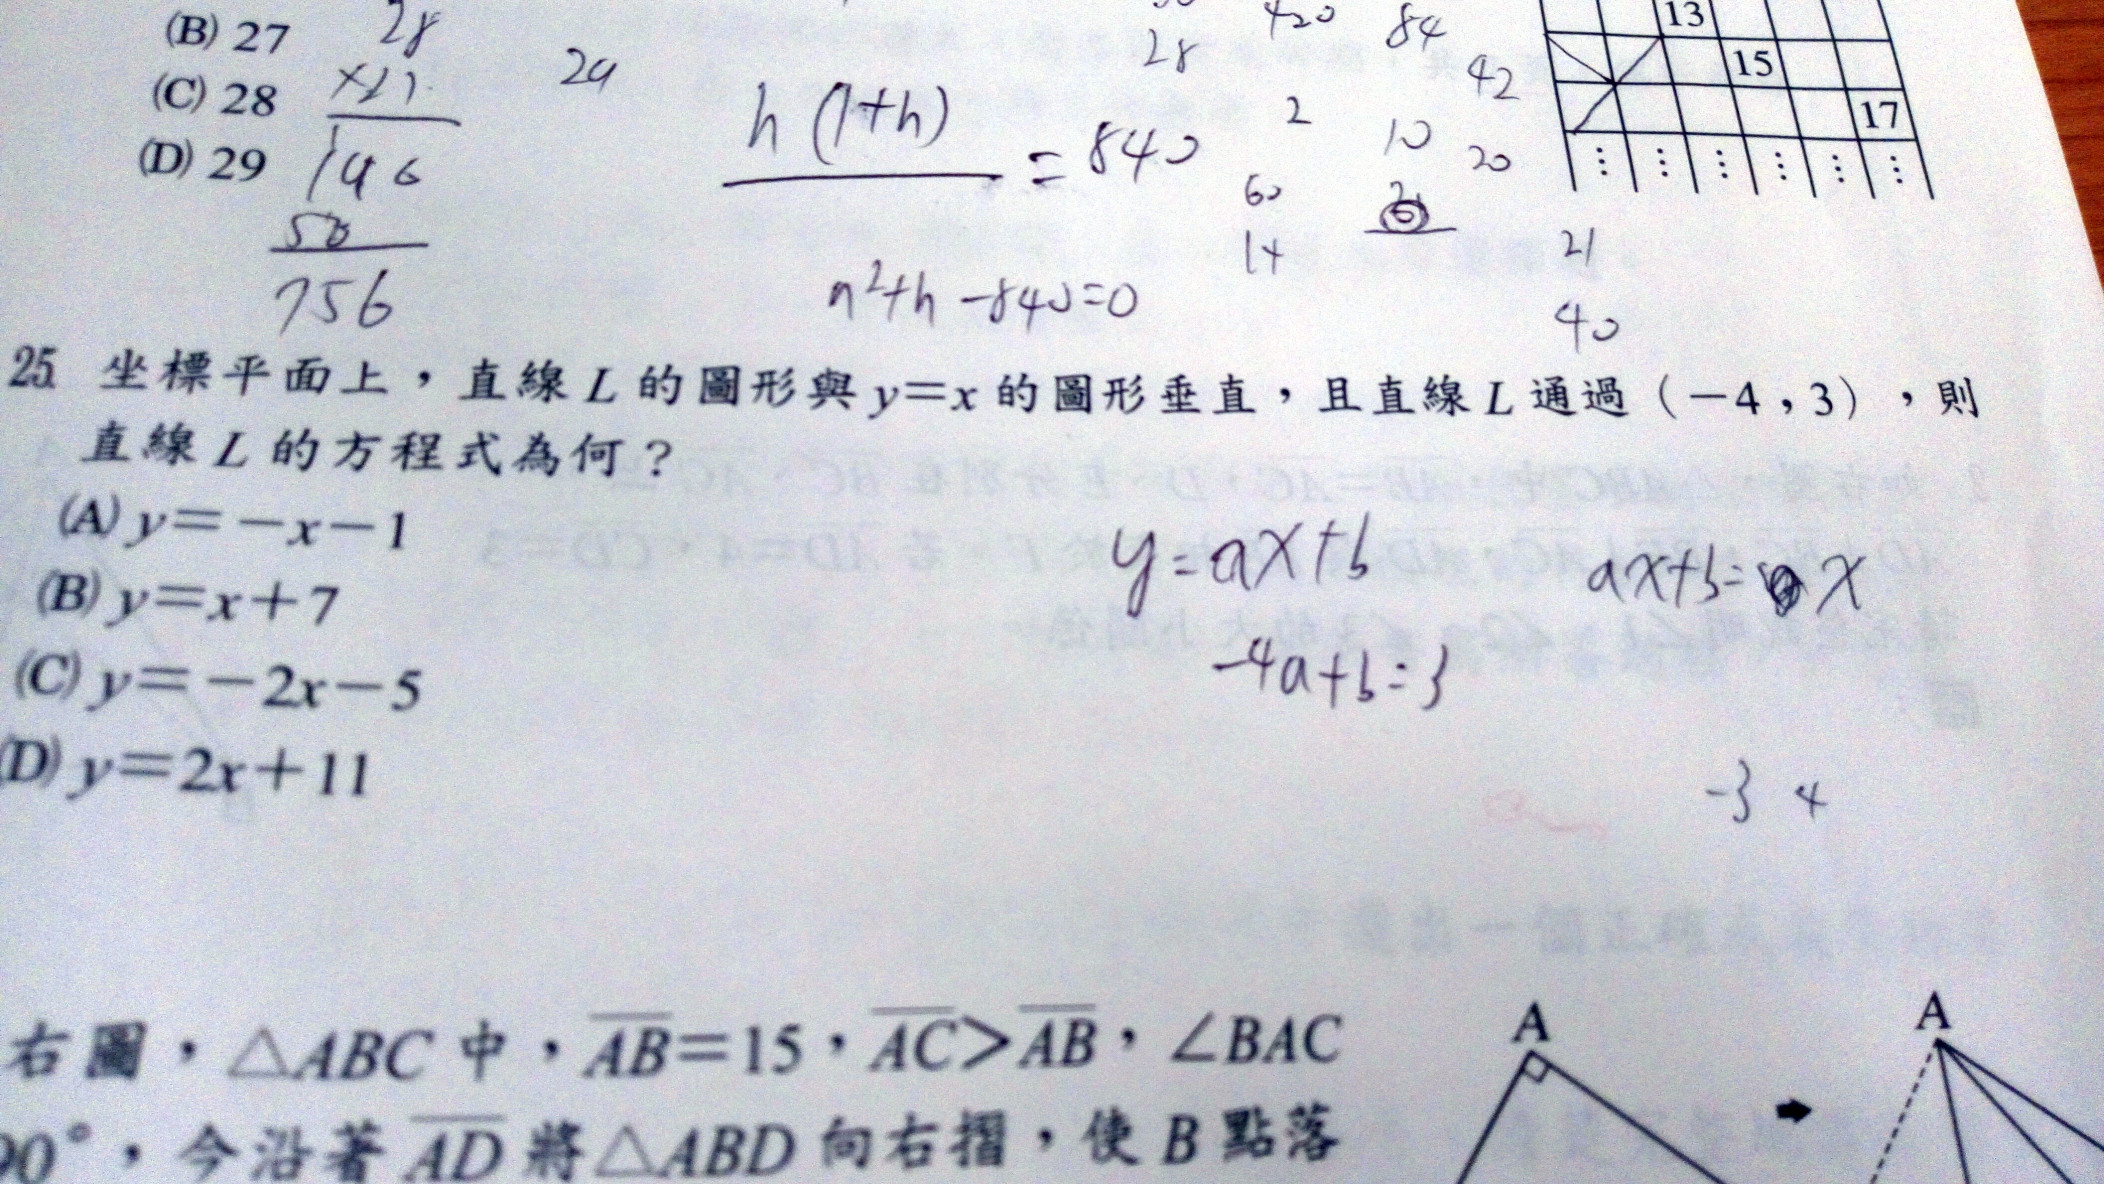 (B) 27
(C) 28
(D) 29
28
196
756
29
h(1+h)
= 840
n²+h-840=0
28
420
84
42
2
10
20
60
14
21
40
13
15
17
25. 坐標平面上，直線 L 的圖形與 y=x 的圖形垂直，且直線 L 通過（-4，3），則
直線 L 的方程式為何？
(A) y=-x-1
(B) y=x+7
(C) y=-2x-5
(D) y=2x+11
y=ax+b
ax+b= x
-4a+b=3
-3 4
右圖，△ABC 中，AB=15，AC>AB，∠BAC
90°，今沿著 AD 將△ABD 向右摺，使 B 點落
A
A